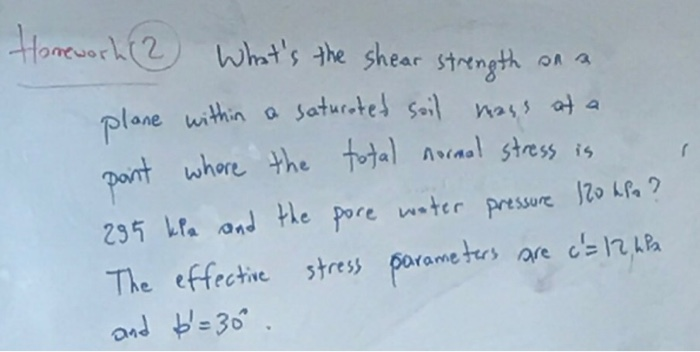 Homework(2) What's the shear strength on a
plane within a saturated soil mass at a
point where the total normal stress is
295 kPa and the pore water pressure 120 kPa?
The effective stress parameters are c'=12 kPa
and ϕ'=30°.